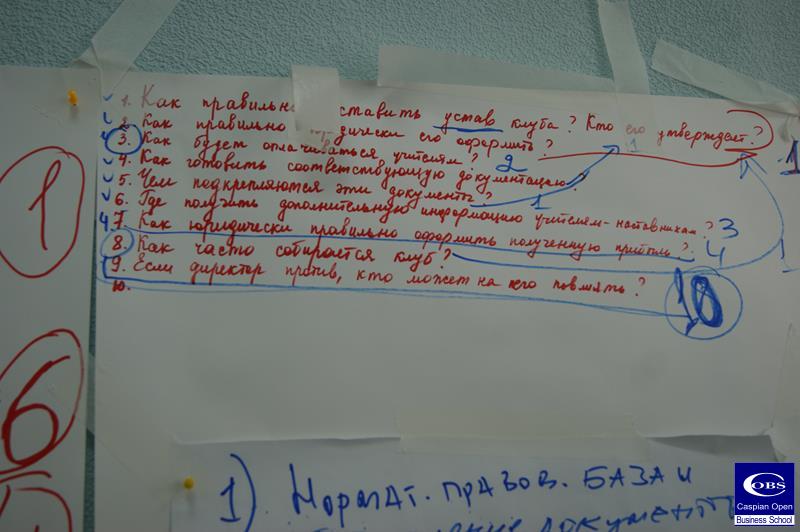 1. Как правильно ставить устав клуба? Кто его утверждает?
2. Как правильно юридически его оформить?
3. Как будет оплачиваться учителям?
4. Как готовить соответствующую документацию?
5. Чем подкрепляются эти документы?
6. Где получить дополнительную информацию учителям-наставникам?
7. Как юридически правильно оформить полученную прибыль?
8. Как часто собирается клуб?
9. Если директор против, кто может на него повлиять?
10.
2
1
1
3
4
1
1
10
1
6
1). Нормат. правов. база и
документы
OBS
Caspian Open
Business School